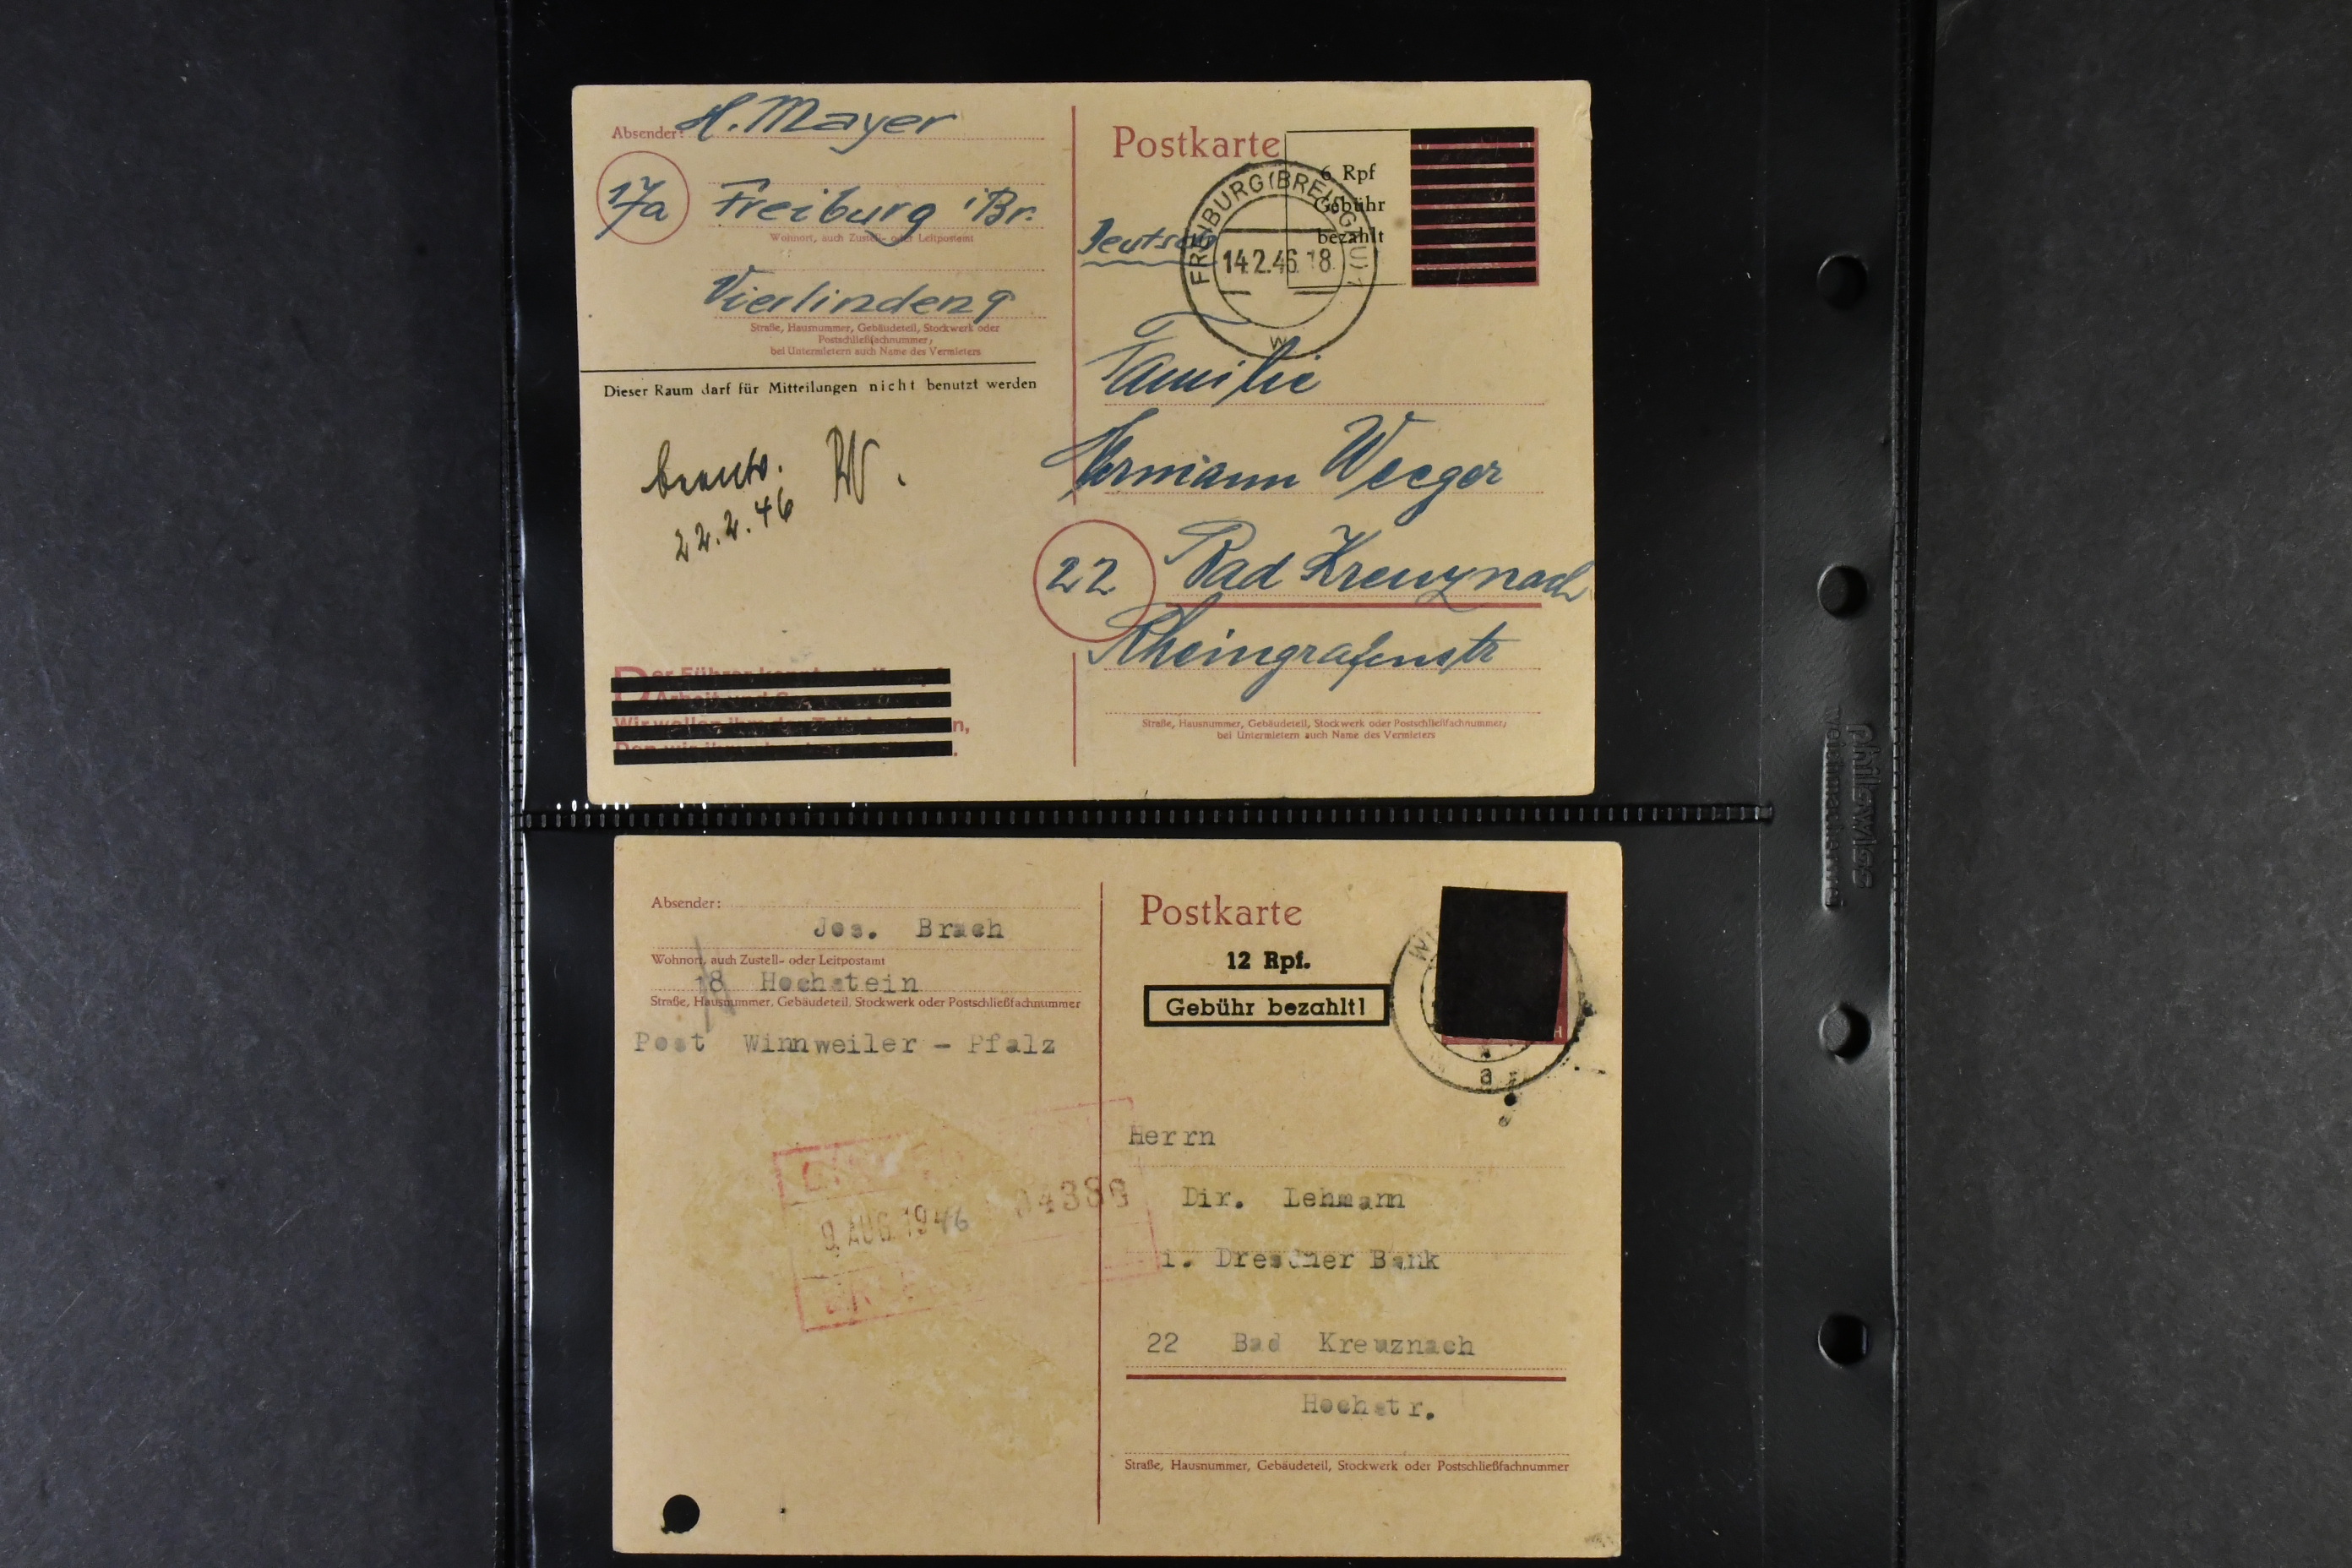 Absender: H. Mayer
17a Freiburg i Br.
Wohnort, auch Zustell- oder Leitpostamt
Vierlinden 9
Straße, Hausnummer, Gebäudeteil, Stockwerk oder
Postschließfachnummer,
bei Untermietern auch Name des Vermieters
Dieser Raum darf für Mitteilungen nicht benutzt werden
22.2.46
Der Führer
Arbeit und
Wir wollen
n,
Postkarte
6 Rpf
Gebühr
bezahlt
FREIBURG (BREISGAU) 1
14.2.46.18
w
Deutsch
Familie
Hermann Weeger
22 Bad Kreuznach
Rheingrafenstr
Straße, Hausnummer, Gebäudeteil, Stockwerk oder Postschließfachnummer;
bei Untermietern auch Name des Vermieters
Absender:
Jos. Brach
Wohnort, auch Zustell- oder Leitpostamt
18 Hochstein
Straße, Hausnummer, Gebäudeteil, Stockwerk oder Postschließfachnummer
Post Winnweiler - Pfalz
9 AUG 1946
04388
Postkarte
12 Rpf.
Gebühr bezahlt!
a
Herrn
Dir. Lehmann
i. Dresdner Bank
22 Bad Kreuznach
Hochstr.
Straße, Hausnummer, Gebäudeteil, Stockwerk oder Postschließfachnummer
philawlas
weichmacherfrei